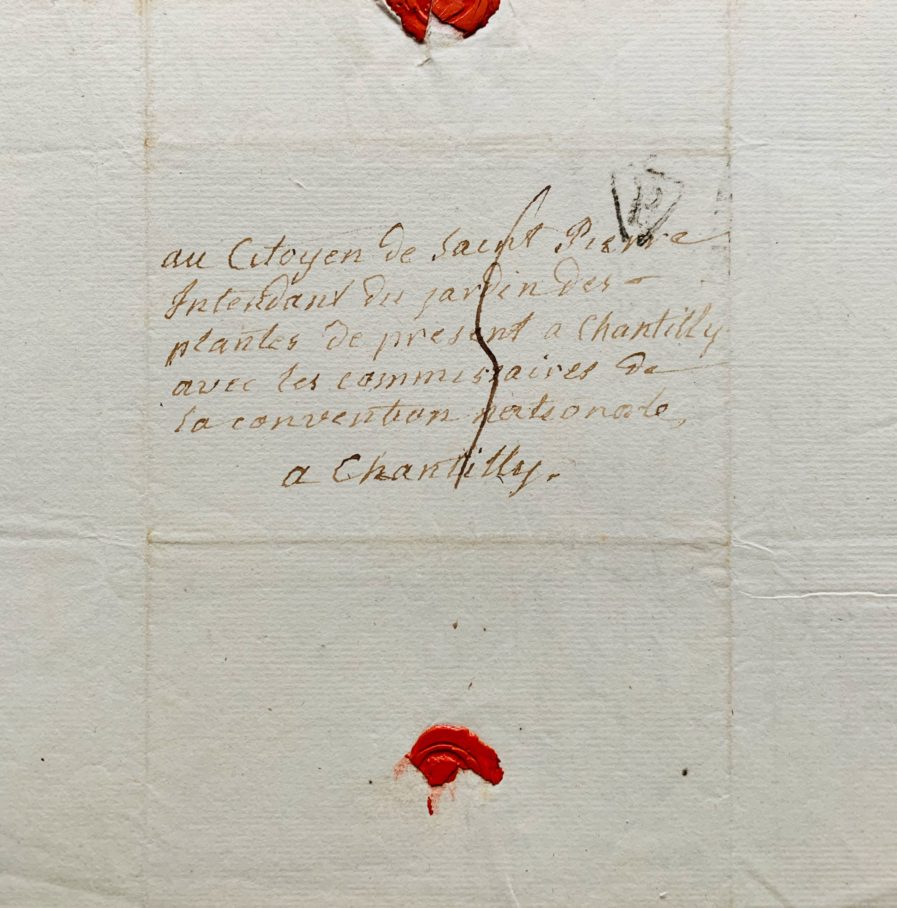 P
au Citoyen de Saint Pierre
Intendant du jardin des
plantes de present a Chantilly
avec les commissaires de
la convention nationale,
a Chantilly.